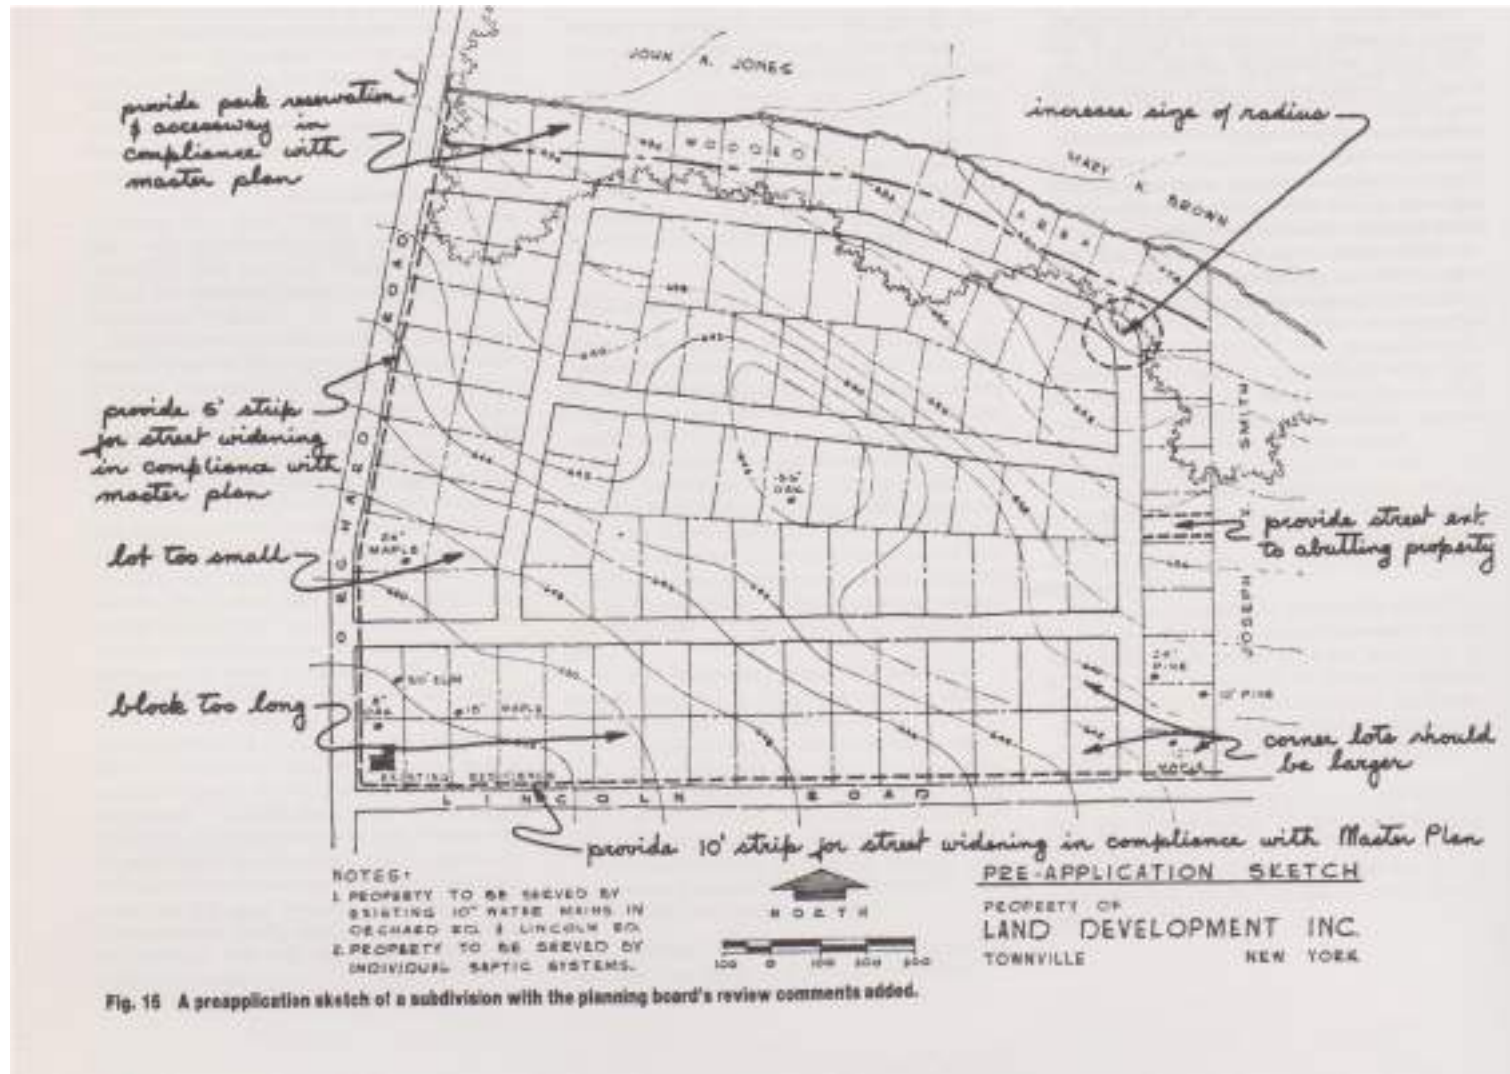 JOHN A. JONES
provide park reservation
& accessway in
compliance with
master plan
increase size of radius
MARY K. BROWN
WOODED
AREA
ORCHARD ROAD
provide 5' strip
for street widening
in compliance with
master plan
JOSEPH V. SMITH
provide street ext.
to abutting property
lot too small
24"
MAPLE
OAK
24"
PINE
12" PINE
block too long
OAK
18" MAPLE
EXISTING RESIDENCE
corner lots should
be larger
LINCOLN ROAD
provide 10' strip for street widening in compliance with Master Plan
NOTES:
1. PROPERTY TO BE SERVED BY
EXISTING 10" WATER MAINS IN
ORCHARD RD. & LINCOLN RD.
2. PROPERTY TO BE SERVED BY
INDIVIDUAL SEPTIC SYSTEMS.
NORTH
100 0 100 200 300
PRE-APPLICATION SKETCH
PROPERTY OF
LAND DEVELOPMENT INC.
TOWNVILLE NEW YORK
Fig. 16 A preapplication sketch of a subdivision with the planning board's review comments added.